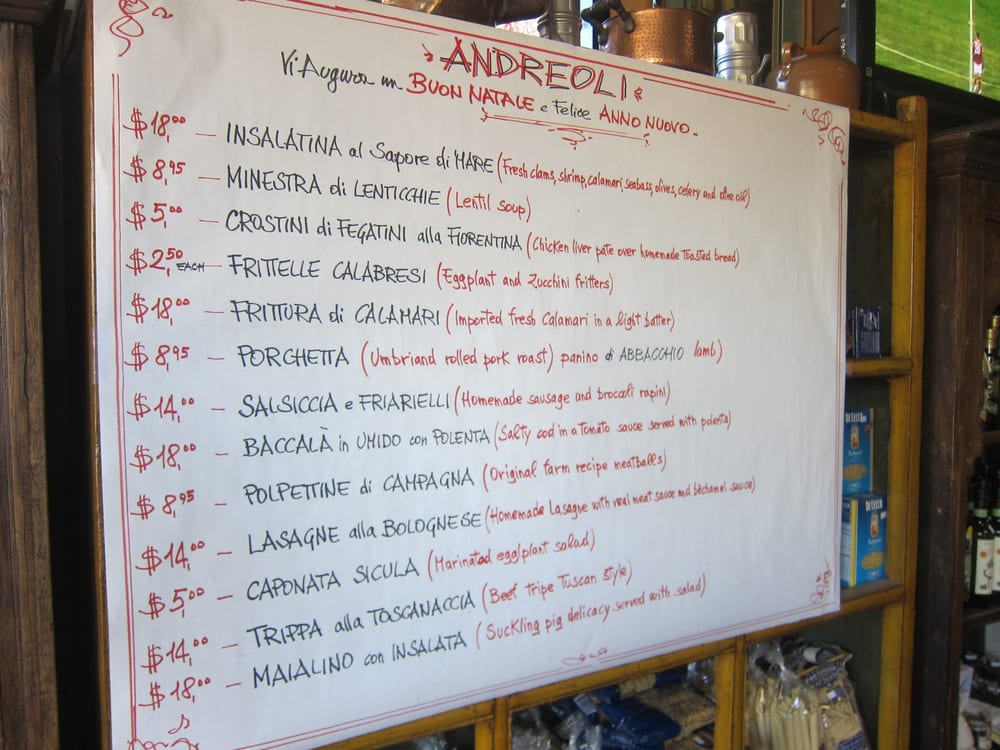 ANDREOLI
Vi Augura un BUON NATALE e Felice ANNO NUOVO.
$18,00 — INSALATINA al Sapore di MARE (Fresh clams, shrimp, calamari, seabass, olives, celery and olive oil)
$8,95 — MINESTRA di LENTICCHIE (Lentil soup)
$5,00 — CROSTINI di FEGATINI alla FIORENTINA (Chicken liver pate over homemade Toasted bread)
$2,50 EACH — FRITTELLE CALABRESI (Eggplant and Zucchini fritters)
$18,00 — FRITTURA di CALAMARI (Imported fresh Calamari in a light batter)
$8,95 — PORCHETTA (Umbriand rolled pork roast) panino di ABBACCHIO lamb)
$14,00 — SALSICCIA e FRIARIELLI (Homemade sausage and broccoli rapini)
$18,00 — BACCALÀ in UMIDO con POLENTA (Salty cod in a Tomato sauce served with polenta)
$8,95 — POLPETTINE di CAMPAGNA (Original farm recipe meatballs)
$14,00 — LASAGNE alla BOLOGNESE (Homemade Lasagne with veal meat sauce and béchamel sauce)
$5,00 — CAPONATA SICULA (Marinated eggplant salad)
$14,00 — TRIPPA alla TOSCANACCIA (Beef tripe Tuscan style)
$18,00 — MAIALINO con INSALATA (Suckling pig delicacy served with salad)
DE CECCO
DE CECCO